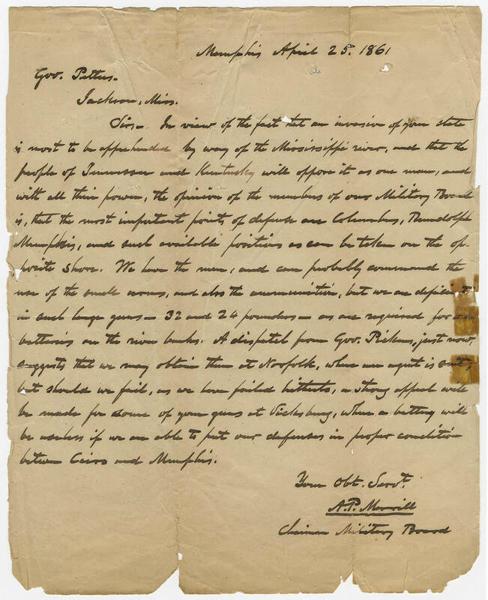 Memphis April 25. 1861
Gov. Pettus.
Jackson, Miss.
Sir - In view of the fact that an invasion of your state
is most to be apprehended by way of the Mississippi river, and that the
people of Tennessee and Kentucky will oppose it as one man, and
with all their power, the opinion of the members of our Military Board
is, that the most important points of defense are Columbus, Randolph
Memphis, and such available positions as can be taken on the op-
posite shore. We have the men, and can probably command the
use of the small arms, and also the ammunition, but we are deficient
in such large guns - 32 and 24 pounders - as are required for
batteries on the river banks. A dispatch from Gov. Pickens, just now,
suggests that we may obtain them at Norfolk, where an agent is
but should we fail, as we have failed hitherto, a strong appeal will
be made for some of your guns at Vicksburg, where a battery will
be useless if we are able to put our defenses in proper condition
between Cairo and Memphis.
Your Obt. Servt.
A.P. Merrill
Chairman Military Board